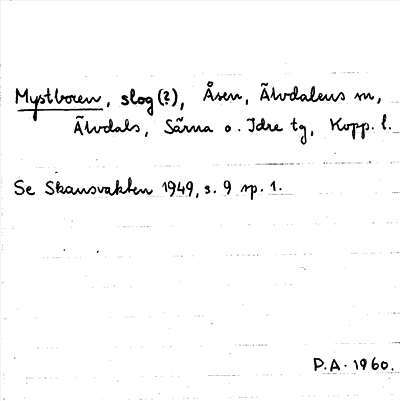 Mystboren, slog (?), Åsen, Älvdalens sn,
Älvdals, Särna o. Idre tg, Kopp. l.
Se Skansvakten 1949, s. 9 sp. 1.
P.A. 1960.